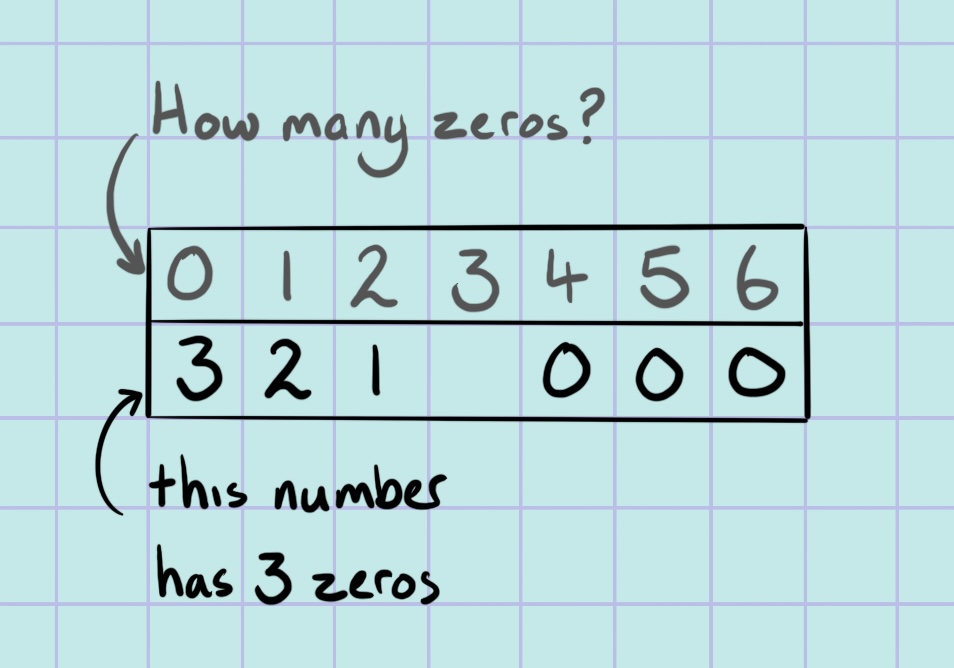 How many zeros?
0 1 2 3 4 5 6
3 2 1 0 0 0
this number
has 3 zeros